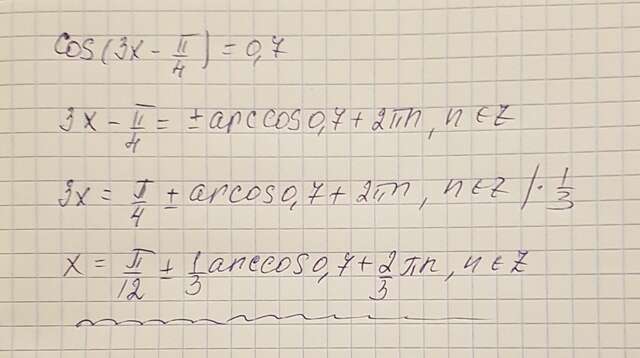 cos(3x - π/4) = 0,7
3x - π/4 = ± arccos 0,7 + 2πn, n ∈ Z
3x = π/4 ± arcos 0,7 + 2πn, n ∈ Z /· 1/3
x = π/12 ± 1/3 arccos 0,7 + 2/3 πn, n ∈ Z